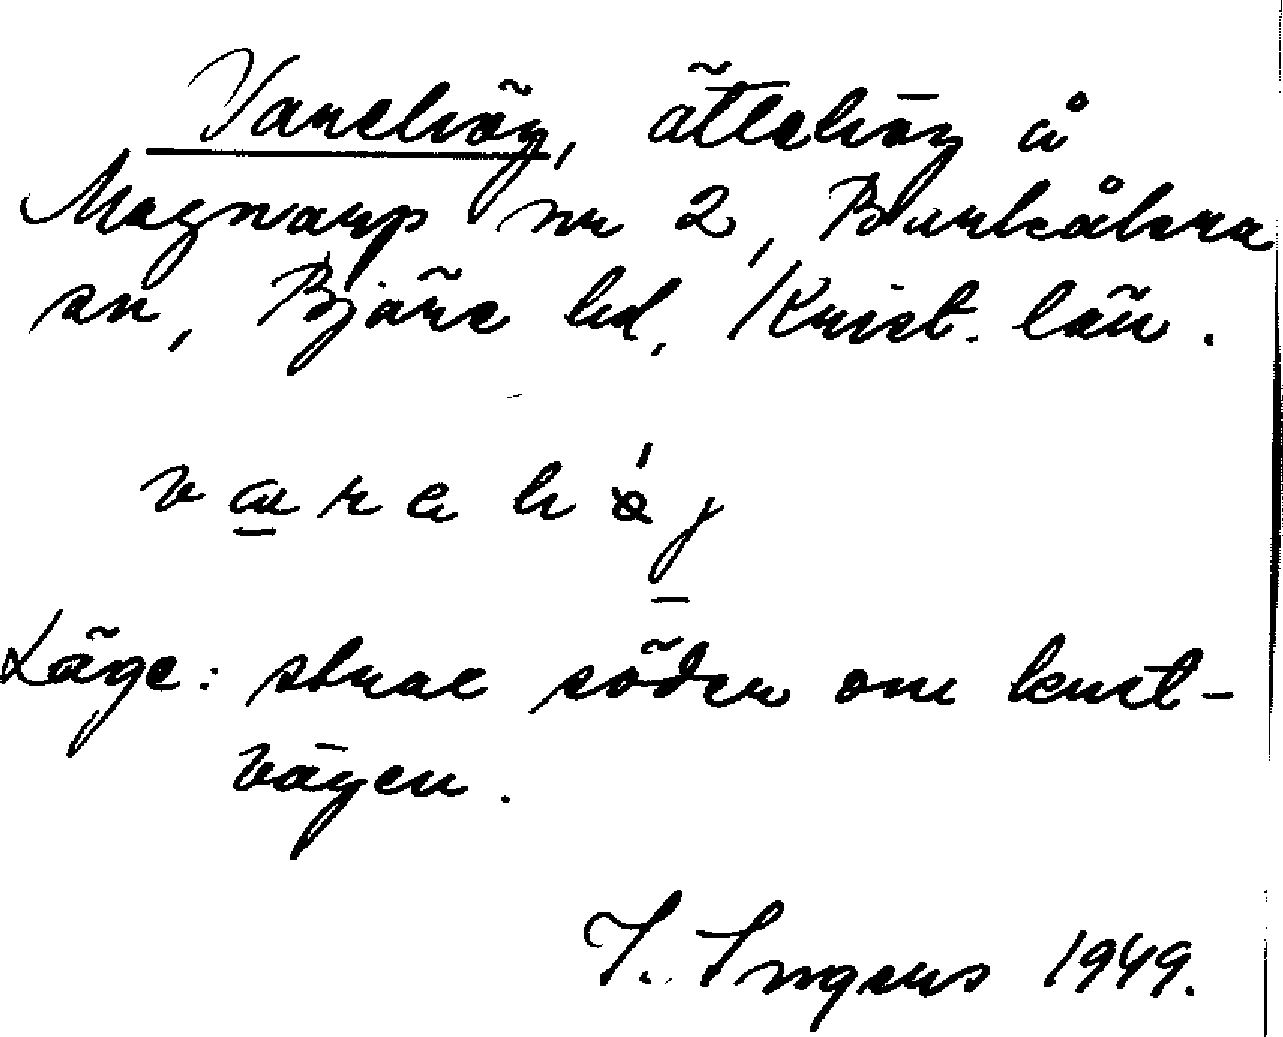 Varehög, ättehög å
Magnarp nr 2, Barkåkra
sn, Bjäre hd, Krist. län.
v a r e h ǿ j
Läge: strax söder om kust-
vägen.
I. Ingers 1949.